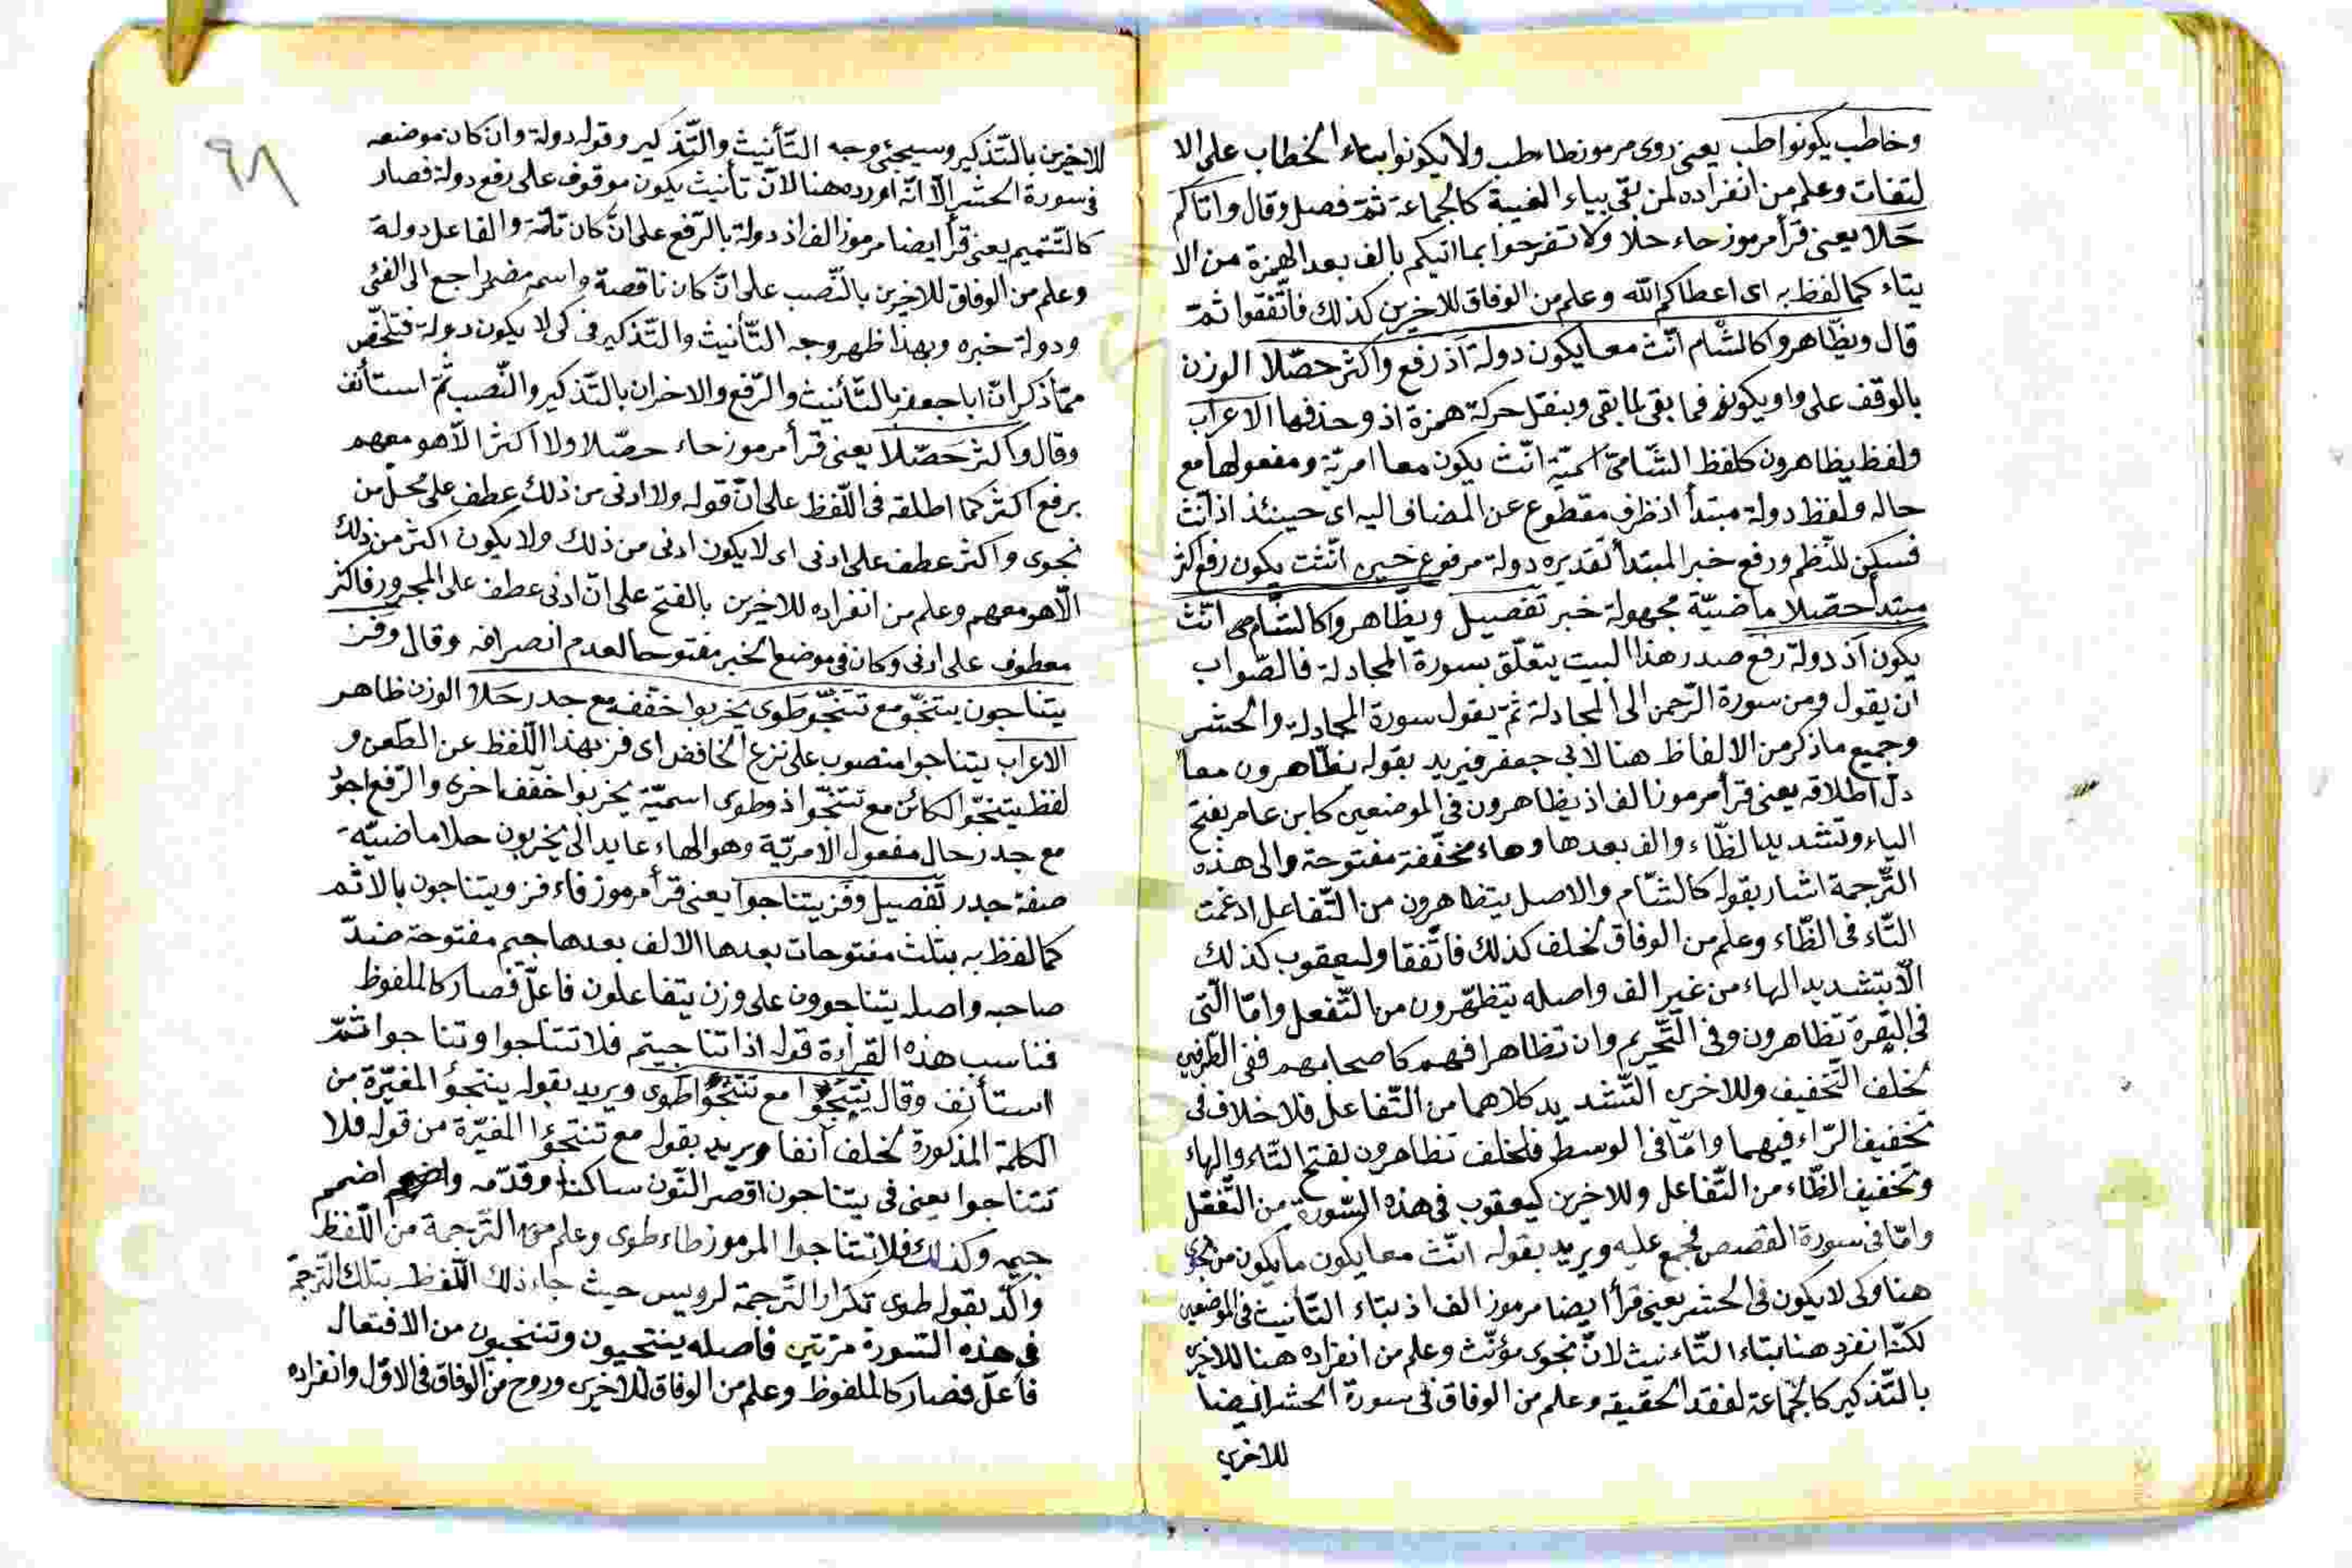 وخاطب يكونوا طب يعنى روى مرموز طاء طب ولا يكونوا بتاء الخطاب على الا
لتفات وعلم من انفراده لمن بقى بياء الغيبة كالجماعة ثمّ فصل وقال واتاكم
حَلا يعنى قرأ مرموز حاء حلا ولا تفرحوا بما اتيكم بالف بعد الهمزة من الا
يتاء كما لفظ به اى اعطاكم الله وعلم من الوفاق للاخرين كذلك فاتّفقوا ثمّ
قال ويظّاهروا كالشّام انّث معا يكون دولة اذ رفع واكثر حصّلا الوزن
بالوقف على واو يكونو فما بقى لما بقى وبنقل حركة همزة اذ وحذفها الاعراب
ولفظ يظاهرون كلفظ الشّامىّ اسميّة انّث يكون معا امريّة ومفعولها مع
حاله ولفظ دولة مبتدأ اذ ظرف مقطوع عن المضاف اليه اى حينئذ اذ انّث
فسكن للنّظم ورفع خبر المبتدأ تقديره دولة مرفوع حين انّثت يكون رفع اكثر
مبتدأ حصّلا ماضيّة مجهولة خبر تفصيل ويظّاهروا كالشّام انّث
يكون اذ دولة رفع صدر هذا البيت يتعلّق بسورة المجادلة فالصّواب
ان يقول ومن سورة الرّحمن الى المجادلة ثمّ يقول سورة المجادلة والحشر
وجميع ما ذكر من الالفاظ هنا لابى جعفر فيريد بقوله يظّاهرون معا
دلّ اطلاقه يعنى قرأ مرموز الف اذ يظاهرون فى الموضعين كابن عامر بفتح
الياء وتشديد الظّاء والف بعدها وهاء مخفّفة مفتوحة والى هذه
التّرجمة اشار بقوله كالشّام والاصل يتظاهرون من التّفاعل ادغمت
التّاء فى الظّاء وعلم من الوفاق لخلف كذلك فاتّفقا وليعقوب كذلك
الّا بتشديد الهاء من غير الف واصله يتظهّرون من التّفعل وامّا الّتى
فى البقرة تظاهرون وفى التّحريم وان تظاهرا فهم كاصحابهم ففى الطّرفين
لخلف التّخفيف وللاخرين التّشديد كلاهما من التّفاعل فلا خلاف فى
تخفيف الرّاء فيهما وامّا فى الوسط فلخلف تظاهرون بفتح التّاء والهاء
وتخفيف الظّاء من التّفاعل وللاخرين كيعقوب فى هذه السّورة من التّفعّل
وامّا فى سورة القصص فجمع عليه ويريد بقوله انّث معا يكون ما يكون من نجوى
هنا وكى لا يكون فى الحشر يعنى قرأ ايضا مرموز الف اذ بتاء التّأنيث فى الموضعين
لكنّه انفرد هنا بتاء التّاءنيث لانّ نجوى مؤنّث وعلم من انفراده هنا للاخرين
بالتّذكير كالجماعة لفقد الحقيقه وعلم من الوفاق فى سورة الحشر ايضا
للاخرين
٩٨
للاخرين بالتّذكير وسيجئ وجه التّأنيث والتّذكير وقوله دولة وان كان موضعه
فى سورة الحشر الّا انّه اورده هنا لانّ تأنيث يكون موقوف على رفع دولة فصار
كالتّتميم يعنى قرأ ايضا مرموز الف اذ دولة بالرّفع على انّ كان تامّة والفاعل دولة
وعلم من الوفاق للاخرين بالنّصب على انّ كان ناقصة واسمه مضمر راجع الى الفئى
ودولة خبره وبهذا ظهر وجه التّأنيث والتّذكير فى كى لا يكون دولة فتلخّص
ممّا ذكر انّ ابا جعفر بالتّأنيث والرّفع والاخران بالتّذكير والنّصب ثمّ استأنف
وقال واكثر حَصّلا يعنى قرأ مرموز حاء حصّلا ولا اكثر الّا هو معهم
برفع اكثر كما اطلقه فى اللّفظ على انّ قوله ولا ادنى من ذلك عطف على محلّ من
نجوى واكثر عطف على ادنى اى لا يكون ادنى من ذلك ولا يكون اكثر من ذلك
الّا هو معهم وعلم من انفراده للاخرين بالفتح على انّ ادنى عطف على المجرور فاكثر
معطوف على ادنى وكان فى موضع الخبر مفتوحا لعدم انصرافه وقال وفز
يتناجون ينتجو مع تنتجوا طوى يخربوا خفّف مع جدر حَلا الوزن ظاهر
الاعراب يتناجوا منصوب على نزع الخافض اى فز بهذا اللّفظ عن الطّعن و
لفظ ينتجوا الكائن مع تنتجوا ذو طوى اسميّة يخربوا خفّف اخرى والرّفع اجود
مع جدر حال مفعول الامريّة وهو الهاء عايد الى يخربون حلا ماضيّة
صفة جدر تفصيل وفز يتناجوا يعنى قرأ مرموز فاء فز ويتناجون بالاثم
كما لفظ به بثلث مفتوحات بعدها الالف بعدها جيم مفتوحة ضدّ
صاحبه واصله يتناجوون على وزن يتفاعلون فاعلّ فصار كالملفوظ
فناسب هذه القراءة قوله اذا تناجيتم فلا تتناجوا وتناجوا ثمّ
استأنف وقال ينتجوا مع تنتجوا طوى ويريد بقوله ينتجوا المغيّرة من
الكلمة المذكورة لخلف آنفا ويريد بقوله مع تنتجوا المغيّرة من قوله فلا
تتناجوا يعنى فى يتناجون اقصر النّون ساكنا وقدّمه واضمم
جيمه وكذلك فلا تتناجوا المرموز طاء طوى وعلم من التّرجمة من اللّفظ
واكّد بقوله طوى تكرار التّرجمة لرويس حيث جاء ذلك اللّفظ بتلك التّرجمة
فى هذه السّورة مرّتين فاصله ينتجيون وتنتجيون من الافتعال
فأعلّ فصار كالملفوظ وعلم من الوفاق للاخرين وروح من الوفاق فى الاوّل وانفراده